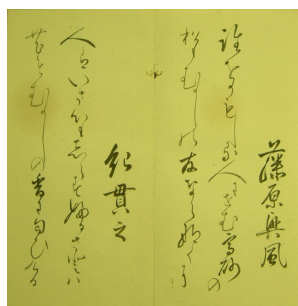 藤原興風
誰をかもしる人にせむ高砂の
松もむかしの友ならなくに
紀貫之
人はいさ心もしらすふるさとハ
花そむかしの香に匂ひける